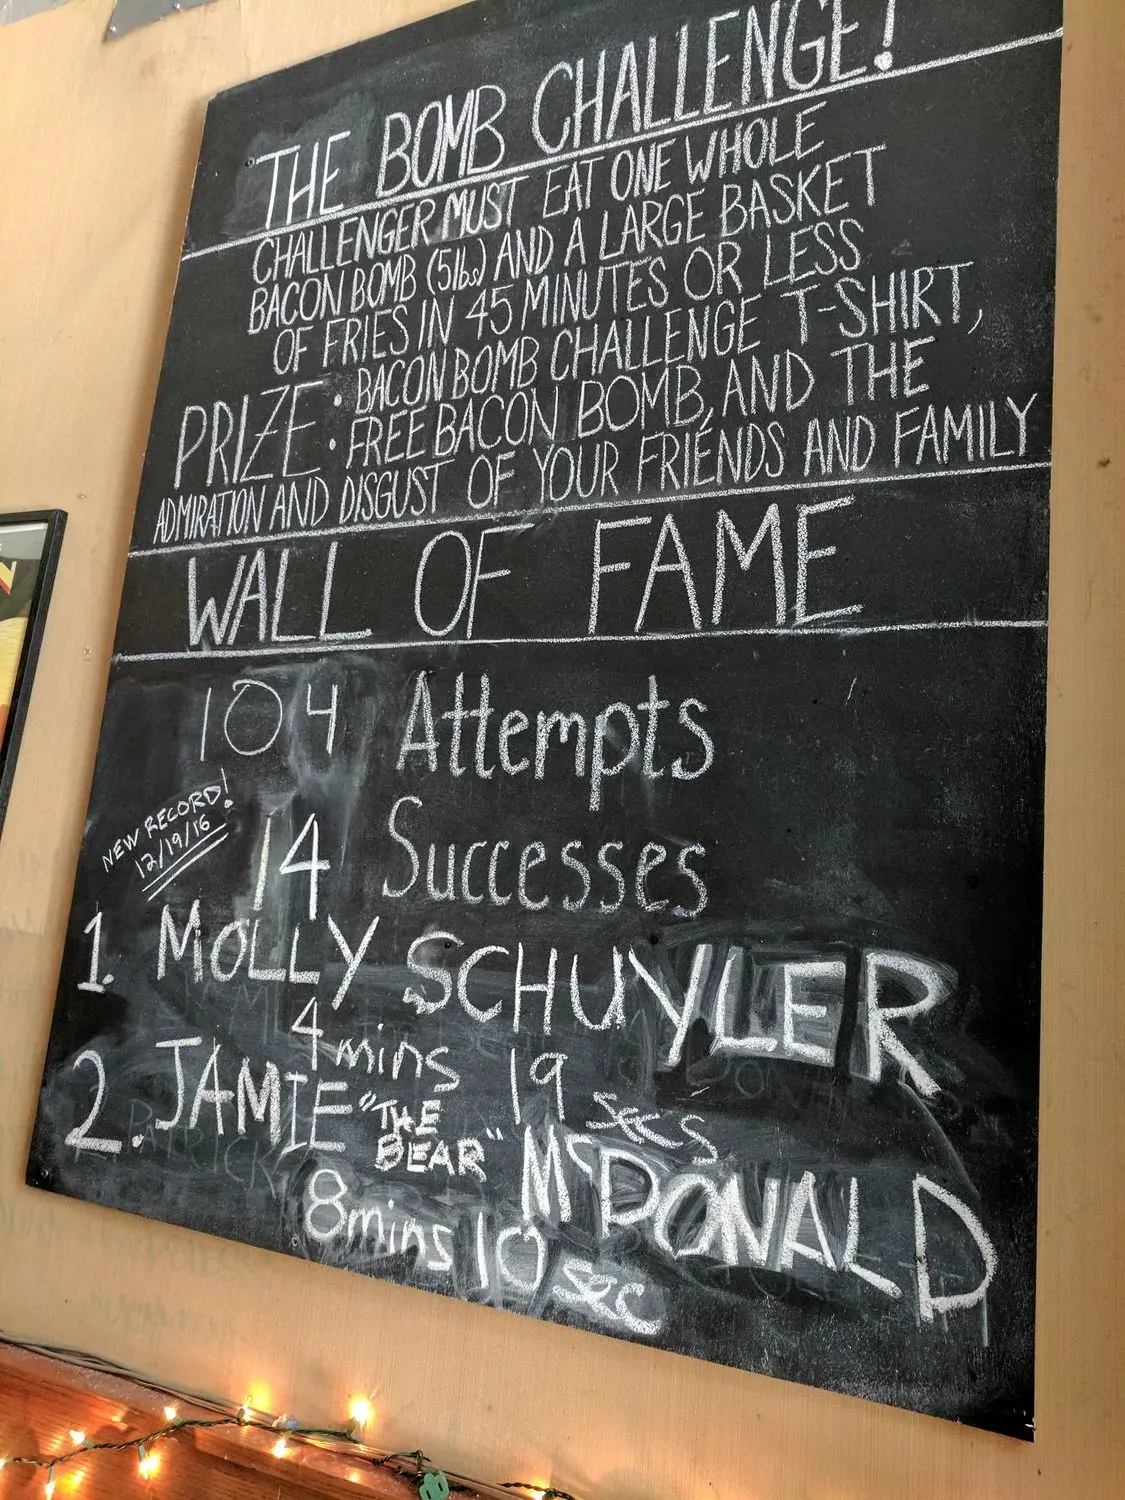 THE BOMB CHALLENGE!
CHALLENGER MUST EAT ONE WHOLE
BACON BOMB (5lbs) AND A LARGE BASKET
OF FRIES IN 45 MINUTES OR LESS
PRIZE: BACON BOMB CHALLENGE T-SHIRT,
FREE BACON BOMB, AND THE
ADMIRATION AND DISGUST OF YOUR FRIENDS AND FAMILY
WALL OF FAME
104 Attempts
NEW RECORD!
12/19/16
14 Successes
1. MOLLY SCHUYLER
4 mins 19 secs
2. JAMIE "THE BEAR" McDONALD
8mins 10 sec